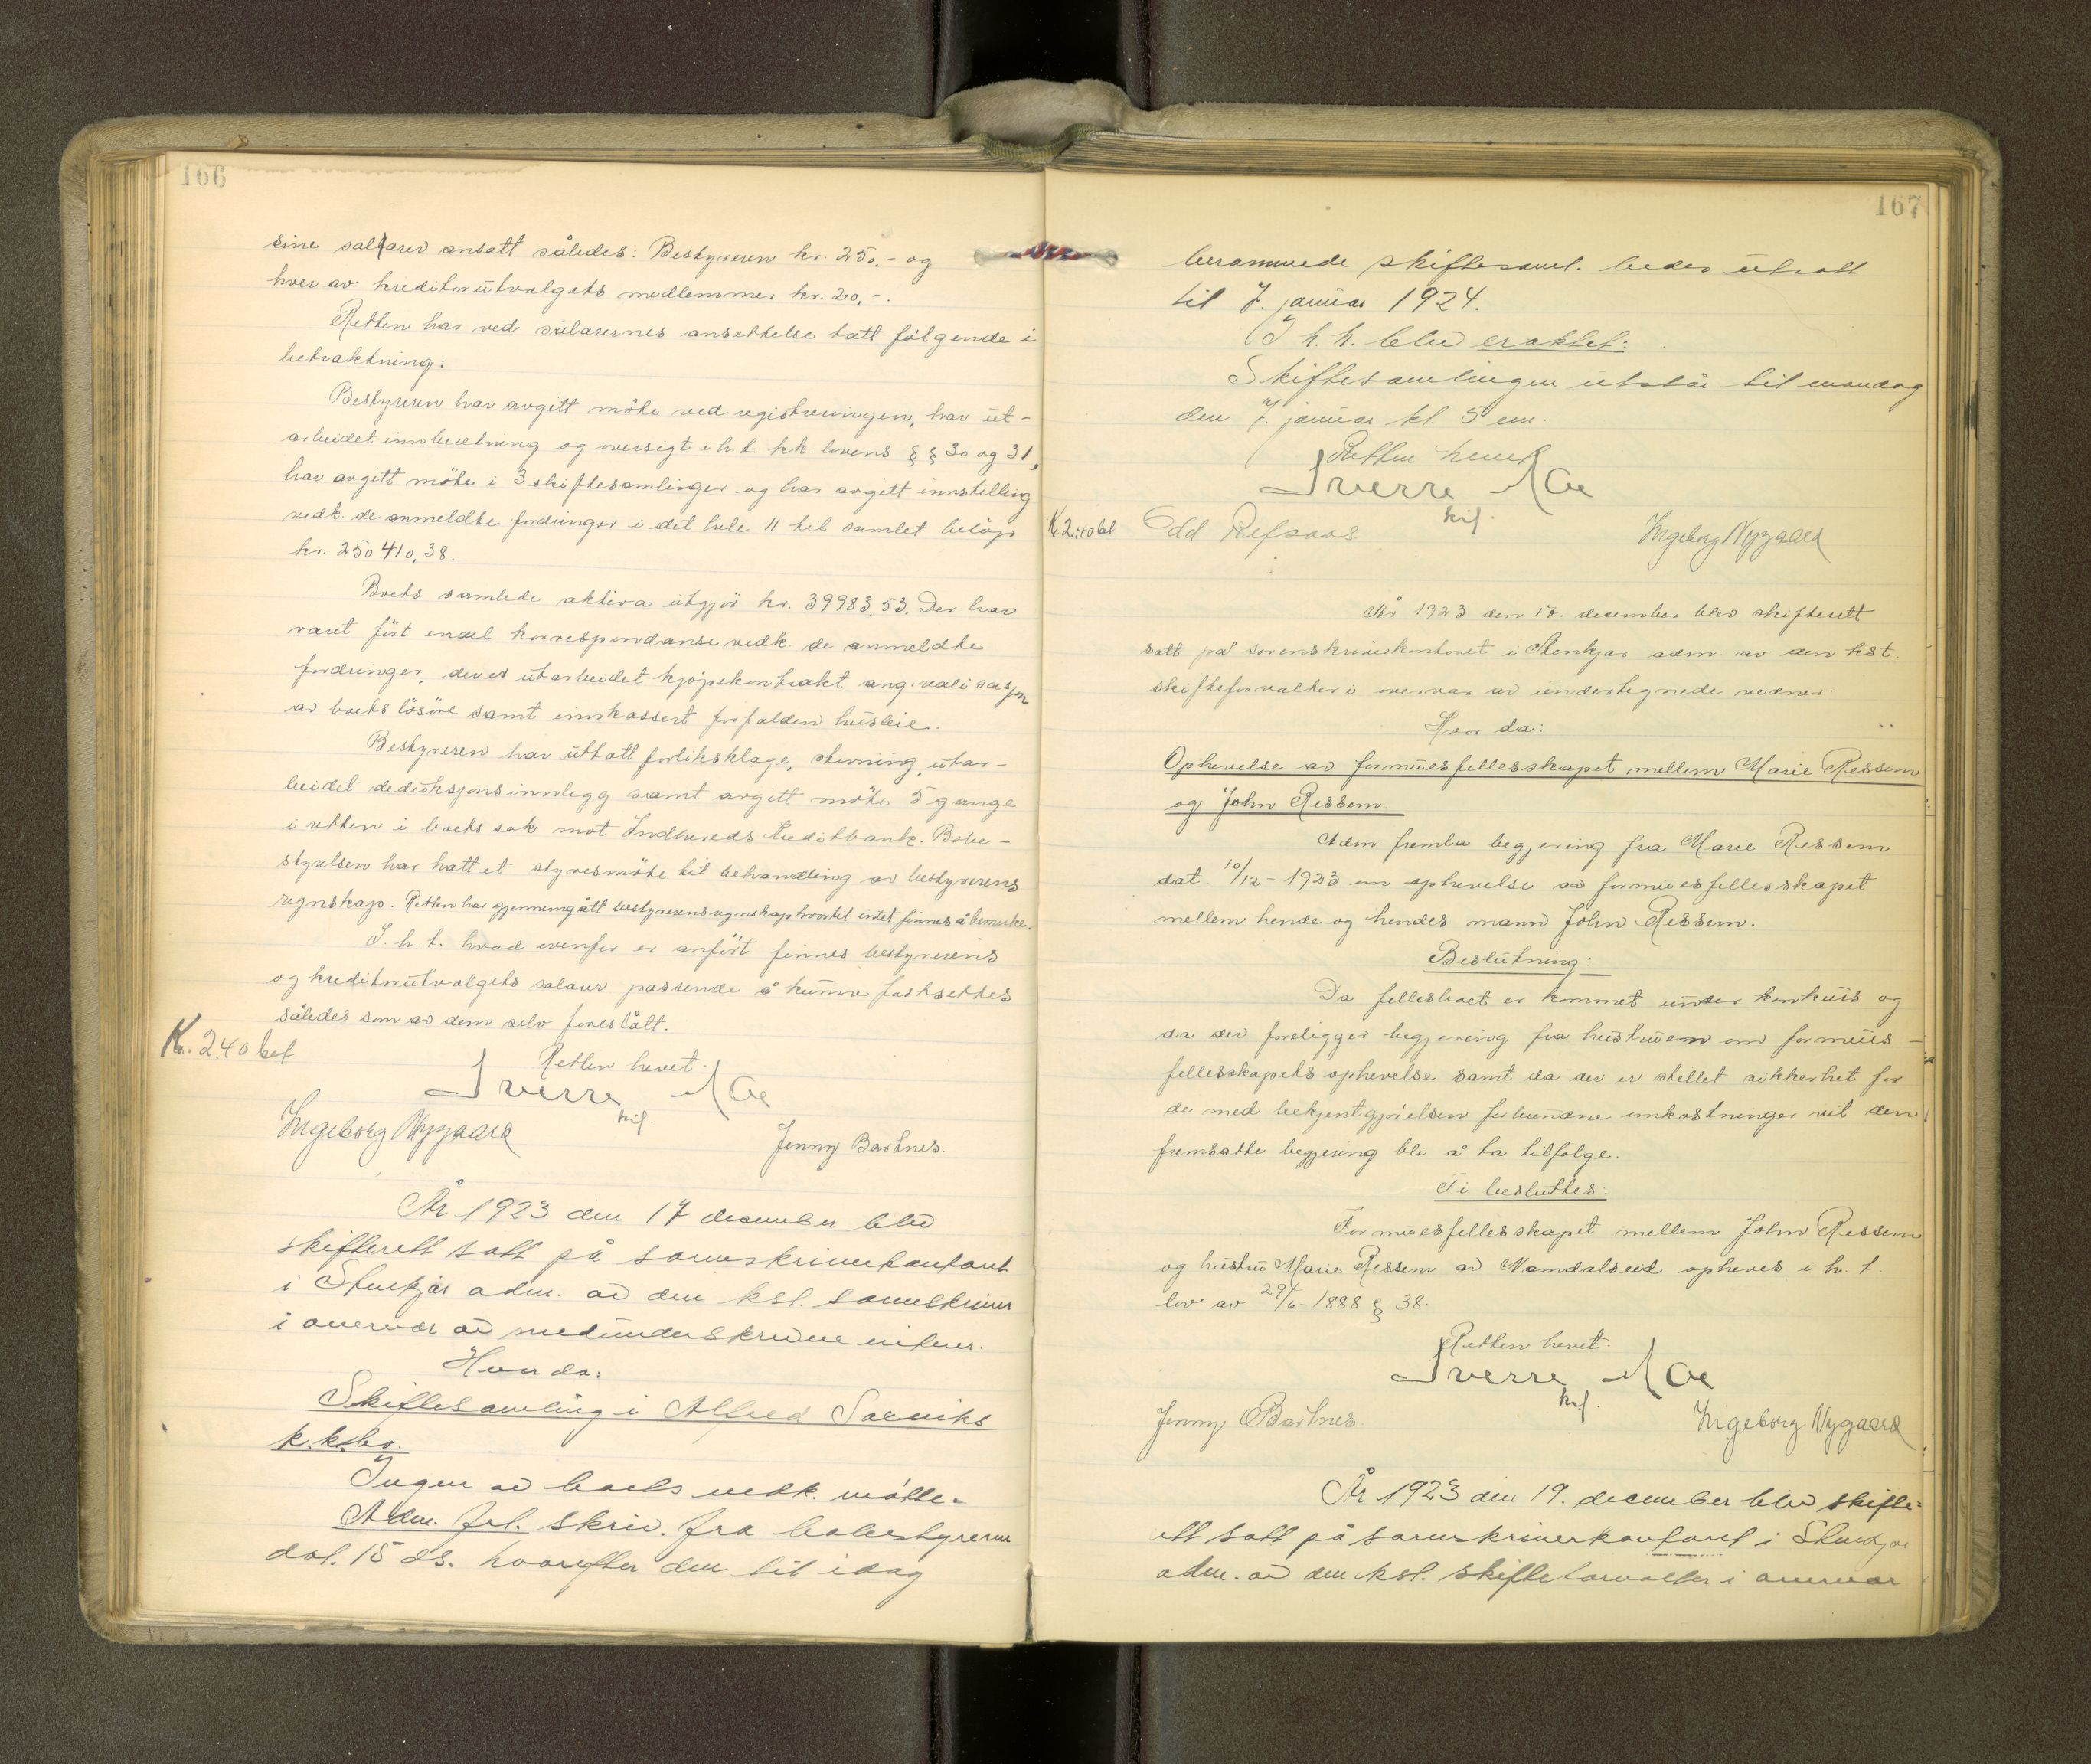 166
sine salarer ansatt således: Bestyreren kr. 250,- og
hver av kreditorutvalgets medlemmer kr. 20,-.
Retten har ved salarernes ansettelse tatt følgende i
betraktning:
Bestyreren har avgitt møte ved registreringen, har ut-
arbeidet innberetning og oversigt i h.t. kk. lovens § § 30 og 31,
har avgitt møte i 3 skiftesamlinger og har avgitt innstilling
vedk. de anmeldte fordringer i det hele 11 til samlet beløp
kr. 250410,38.
Boets samlede aktiva utgjør kr. 39983,53. Der har
været ført endel korrespondanse vedk. de anmeldte
fordringer, der er utarbeidet kjøpekontrakt ang. realisasjon
av boets løsøre samt innkassert forfalden husleie.
Bestyreren har uttatt forliksklage, stevning, utar-
beidet deduksjonsinnlegg samt avgitt møte 5 gange
i retten i boets sak mot Indherreds Kreditbank. Bobe-
styrelsen har hatt et styresmøte til behandling av bestyrerens
regnskap. Retten har gjennemgått bestyrerens regnskap hvortil intet finnes å bemerke.
I h. t. hvad ovenfor er anført finnes bestyrerens
og kreditorutvalgets salarer passende å kunne fastsettes
således som av dem selv foreslått.
Kr. 2.40 bet
Retten hevet.
Sverre Moe
kst.
Ingeborg Nygaard
Jenny Bartnes.
År 1923 den 17 december blev
skifterett satt på sorenskriverkontoret
i Stenkjær adm. av den kst. sorenskriver
i overvær av medunderskrevne vidner.
Hvor da:
Skiftesamling i Alfred
k.k.bo.
Ingen av boets vedk. møtte.
Adm. frl. skriv. fra bobestyreren
dat. 15 ds. hvorefter den til idag
167
berammede skiftesaml. bedes utsatt
til 7. januar 1924.
I h. h. blev eraktet:
Skiftesamlingen utstår til mandag
den 7. januar kl. 5 em.
Retten hevet
Sverre Moe
kst.
Kr. 2.40 bet
Odd Refsaas
Ingeborg Nygaard
År 1923 den 17. december blev skifterett
satt på sorenskriverkontoret i Stenkjær adm. av den kst.
skifteforvalter i overvær av undertegnede vidner.
Hvor da:
Ophevelse av formuesfellesskapet mellem Marie Ressem
og John Ressem.
Adm. fremla begjering fra Marie Ressem
dat. 10/12 - 1923 om ophevelse av formuesfellesskapet
mellem hende og hendes mann John Ressem.
Beslutning:
Da fellesboet er kommet under konkurs og
da der foreligger begjering fra hustruen om formues-
fellesskapets ophevelse samt da der er stillet sikkerhet for
de med bekjentgjørelsen forbundne omkostninger vil den
fremsatte begjering bli å ta tilfølge.
Ti besluttes:
Formuesfellesskapet mellem John Ressem
og hustru Marie Ressem av Namdalseid opheves i h. t.
lov av 29/6 - 1888 § 38.
Retten hevet.
Sverre Moe
kst.
Jenny Bartnes.
Ingeborg Nygaard
År 1923 den 19. december blev skifte-
rett satt på sorenskriverkontoret i Stenkjær
adm. av den kst. skifteforvalter i overvær